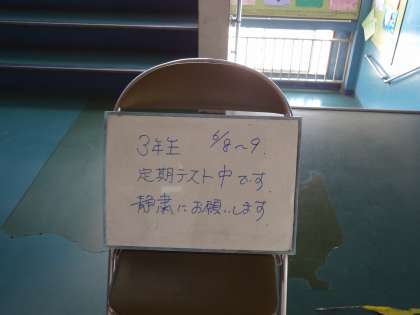 3年生 6/8〜9.
定期テスト中です.
静粛にお願いします.